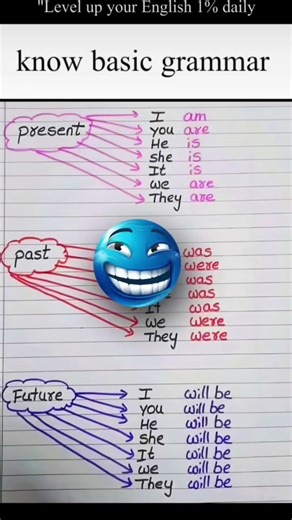 "Level up your English 1% daily
know basic grammar
present
I am
you are
He is
she is
It is
we are
They are
past
was
were
was
was
It was
we were
They were
Future
I will be
you will be
He will be
she will be
It will be
we will be
They will be